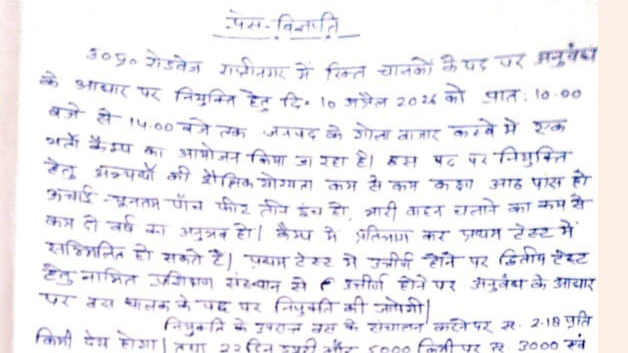 प्रेस-विज्ञप्ति
उ०प्र० रोडवेज राप्तीनगर में रिक्त चालकों के पद पर अनुबंध
के आधार पर नियुक्ति हेतु दि० 10 अप्रैल 2026 को प्रात: 10.00
बजे से 14.00 बजे तक जनपद के गोला बाजार कस्बे में एक
भर्ती कैम्प का आयोजन किया जा रहा है। इस पद पर नियुक्ति
हेतु अभ्यर्थी की शैक्षिक योग्यता कम से कम कक्षा आठ पास हो
ऊंचाई न्यूनतम पाँच फीट तीन इंच हो, भारी वाहन चलाने का कम से
कम दो वर्ष का अनुभव हो। कैम्प में प्रतिभाग कर प्रथम टेस्ट में
सम्मिलित हो सकते हैं। प्रथम टेस्ट में उत्तीर्ण होने पर द्वितीय टेस्ट
हेतु नामित प्रशिक्षण संस्थान से उत्तीर्ण होने पर अनुबंध के आधार
पर बस चालक के पद पर नियुक्ति की जायेगी।
नियुक्ति के उपरान्त बस के संचालन करने पर रू. 2.18 प्रति
किमी देय होगा। तथा 22 दिन ड्यूटी और 5000 किमी पर रू 3000 एवं